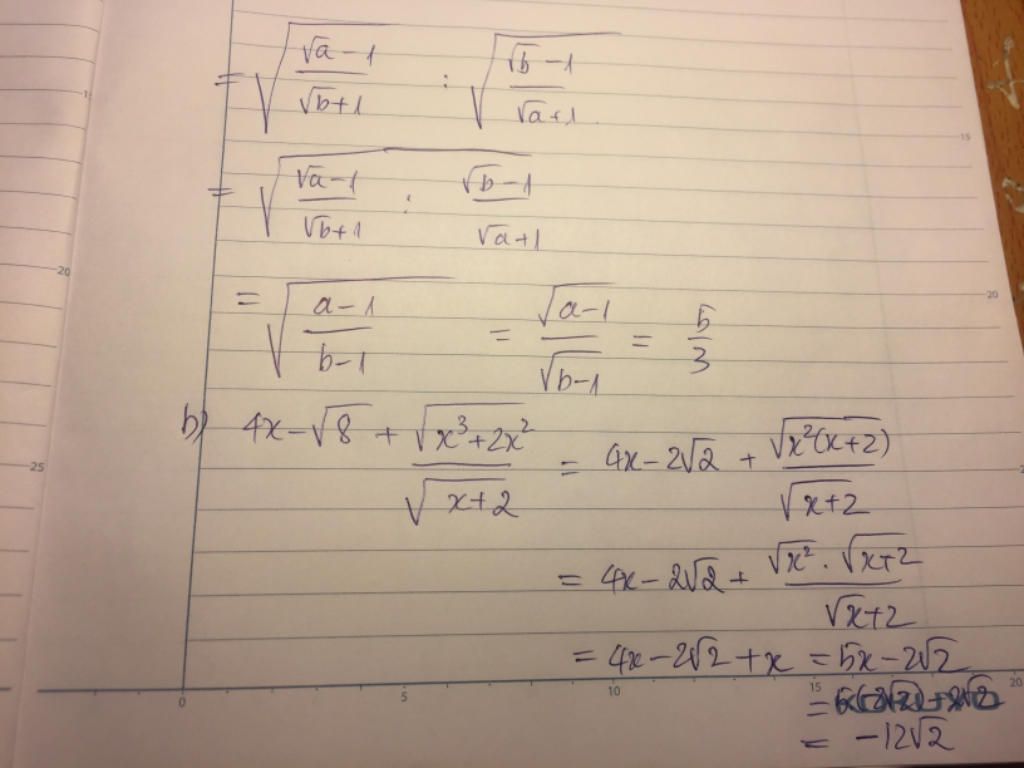 = √((√a - 1)/(√b + 1)) : √((√b - 1)/(√a + 1))
= √((√a - 1)/(√b + 1) : (√b - 1)/(√a + 1))
= √((a - 1)/(b - 1)) = √(a - 1)/√(b - 1) = 5/3
b) 4x - √8 + √(x³ + 2x²)/√(x + 2) = 4x - 2√2 + √(x²(x + 2))/√(x + 2)
= 4x - 2√2 + √x² . √(x + 2)/√x + 2
= 4x - 2√2 + x = 5x - 2√2
= -12√2
15
20
20
25
0 5 10 15 20